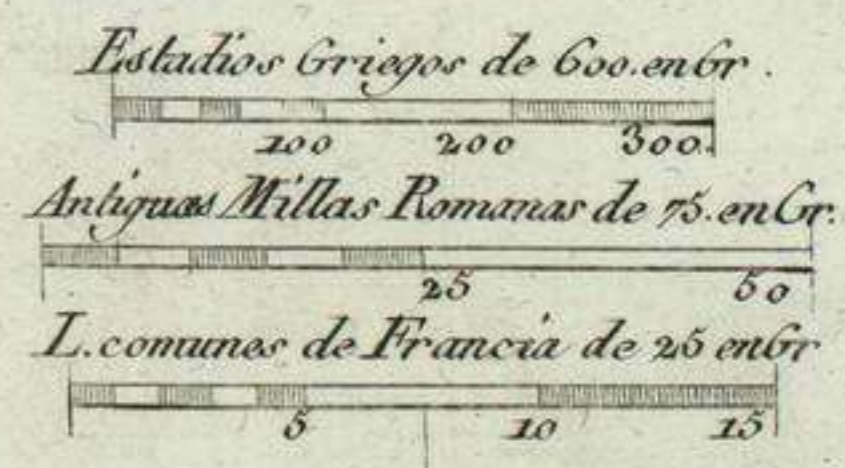 Estadios Griegos de 600. en Gr.
100 200 300.
Antiguas Millas Romanas de 75. en Gr.
25 50
L. comunes de Francia de 25 en Gr
5 10 15